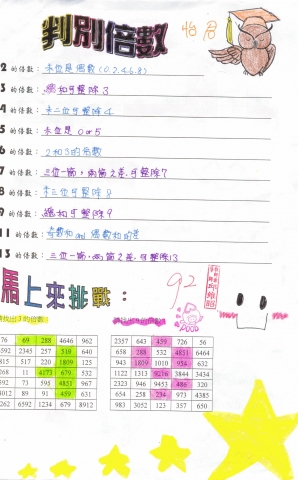 判別倍數 怡君
2 的倍數：末位是偶數(0.2.4.6.8)
3 的倍數：總和可整除3
4 的倍數：末二位可整除4
5 的倍數：末位是0or5
6 的倍數：2和3的倍數
7 的倍數：三位一節，兩節之差.可整除7
8 的倍數：末三位可整除8
9 的倍數：總和可整除9
11 的倍數：奇數和and偶數和的差
13 的倍數：三位一節,兩節之差.可整除13
馬上來挑戰： 92
請找出3的倍數
76 69 288 4646 962
5592 2345 257 519 640
815 517 220 1809 125
268 11 4173 679 532
592 73 595 4851 967
4012 89 91 459 631
6262 6592 1234 679 8912
2357 643 459 726 56
658 288 532 4851 6464
943 1809 1010 954 632
1122 1313 9216 3844 3434
2323 946 9453 486 320
654 258 234 973 4385
983 3052 123 357 650